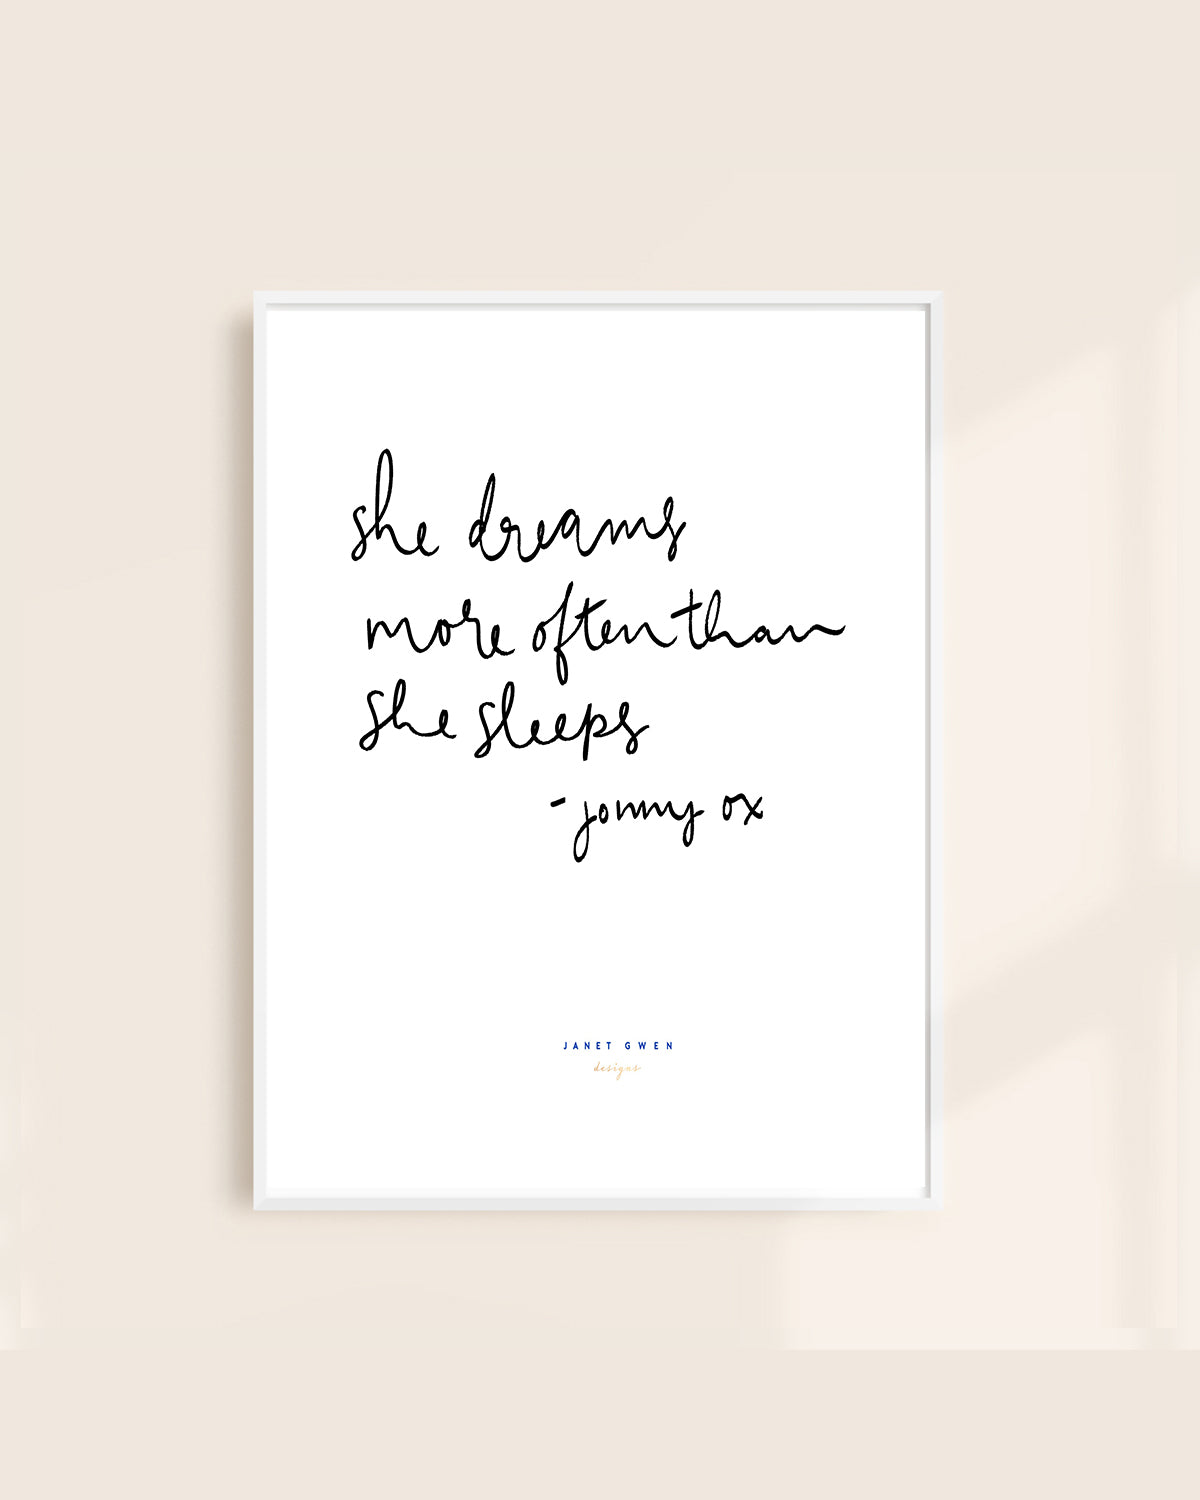 she dreams
more often than
she sleeps
- jonny ox
JANET GWEN
designs